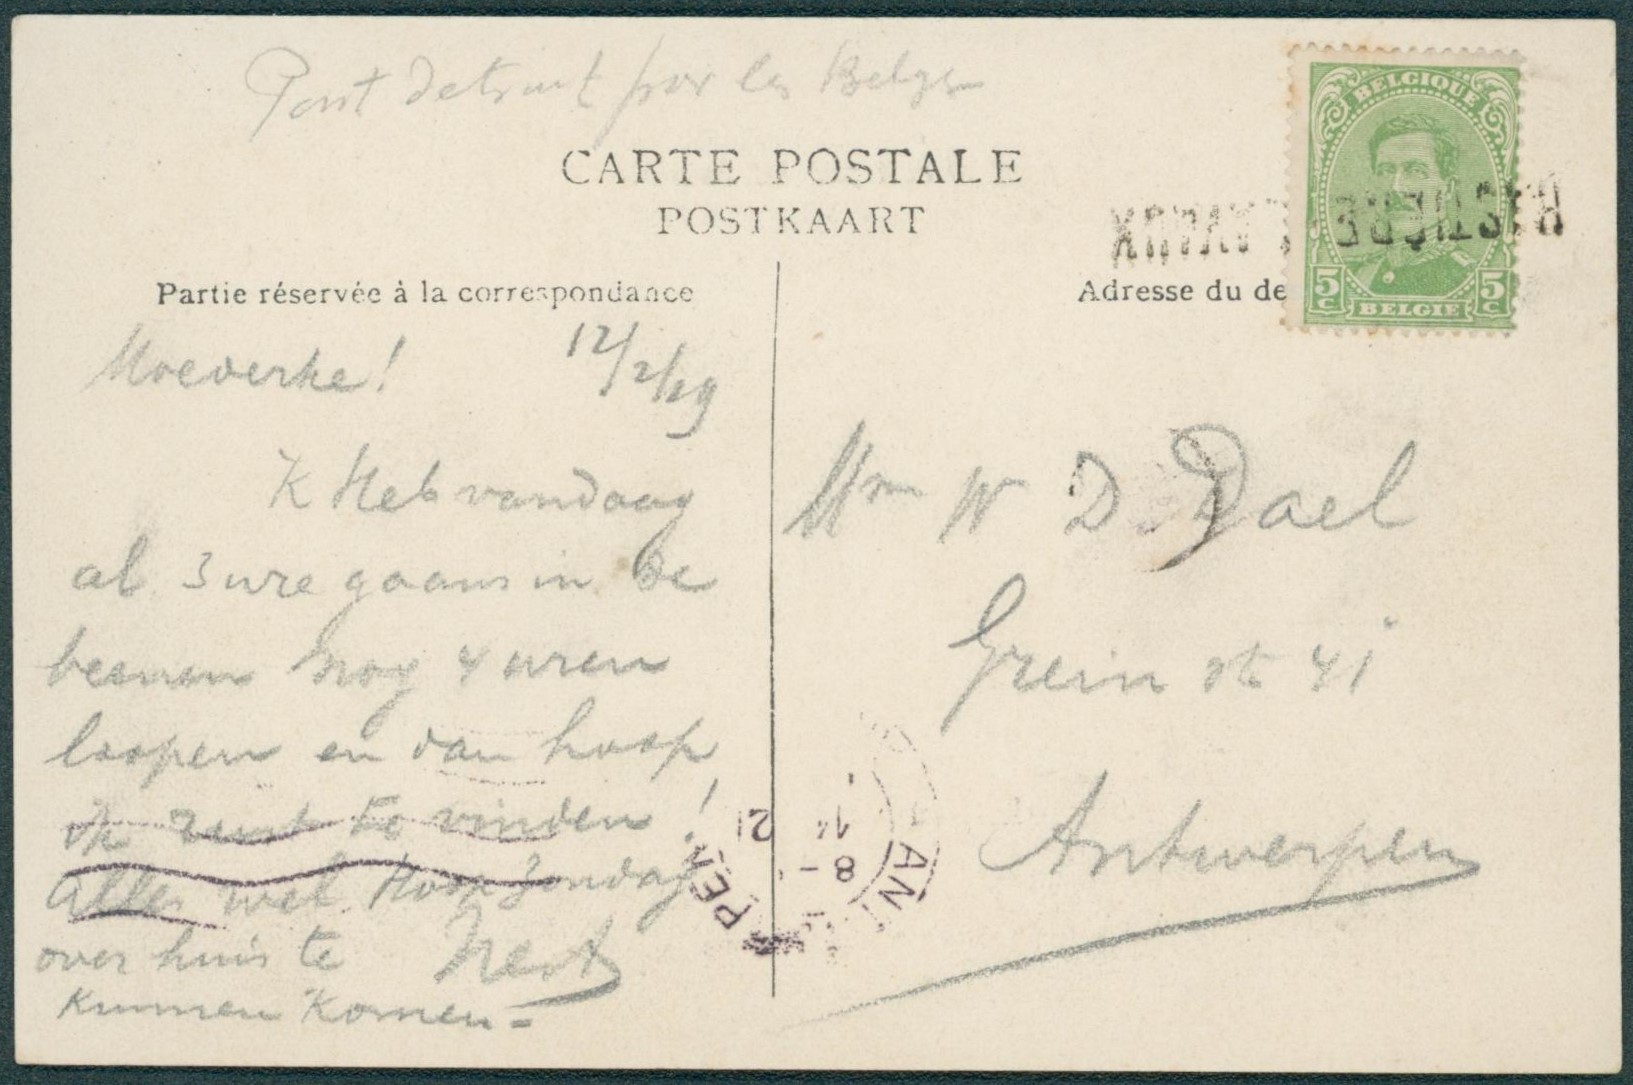 Pont detruit par les Belges
CARTE POSTALE
POSTKAART
BELGIQUE
5c 5c
BELGIË
BASTOGNE
Partie réservée à la correspondance
Adresse du de
Moederke! 12/2/19
K Heb vandaag
al 3 ure gaans in de
beenen nog 4 uren
loopen en dan hoop
ik rust te vinden!
Alles wel Hoop Zondag
over huis te
kunnen komen =
Nest
Mm W D. Dael
Grein str 41
Antwerpen
ANT PEN
8 -
14